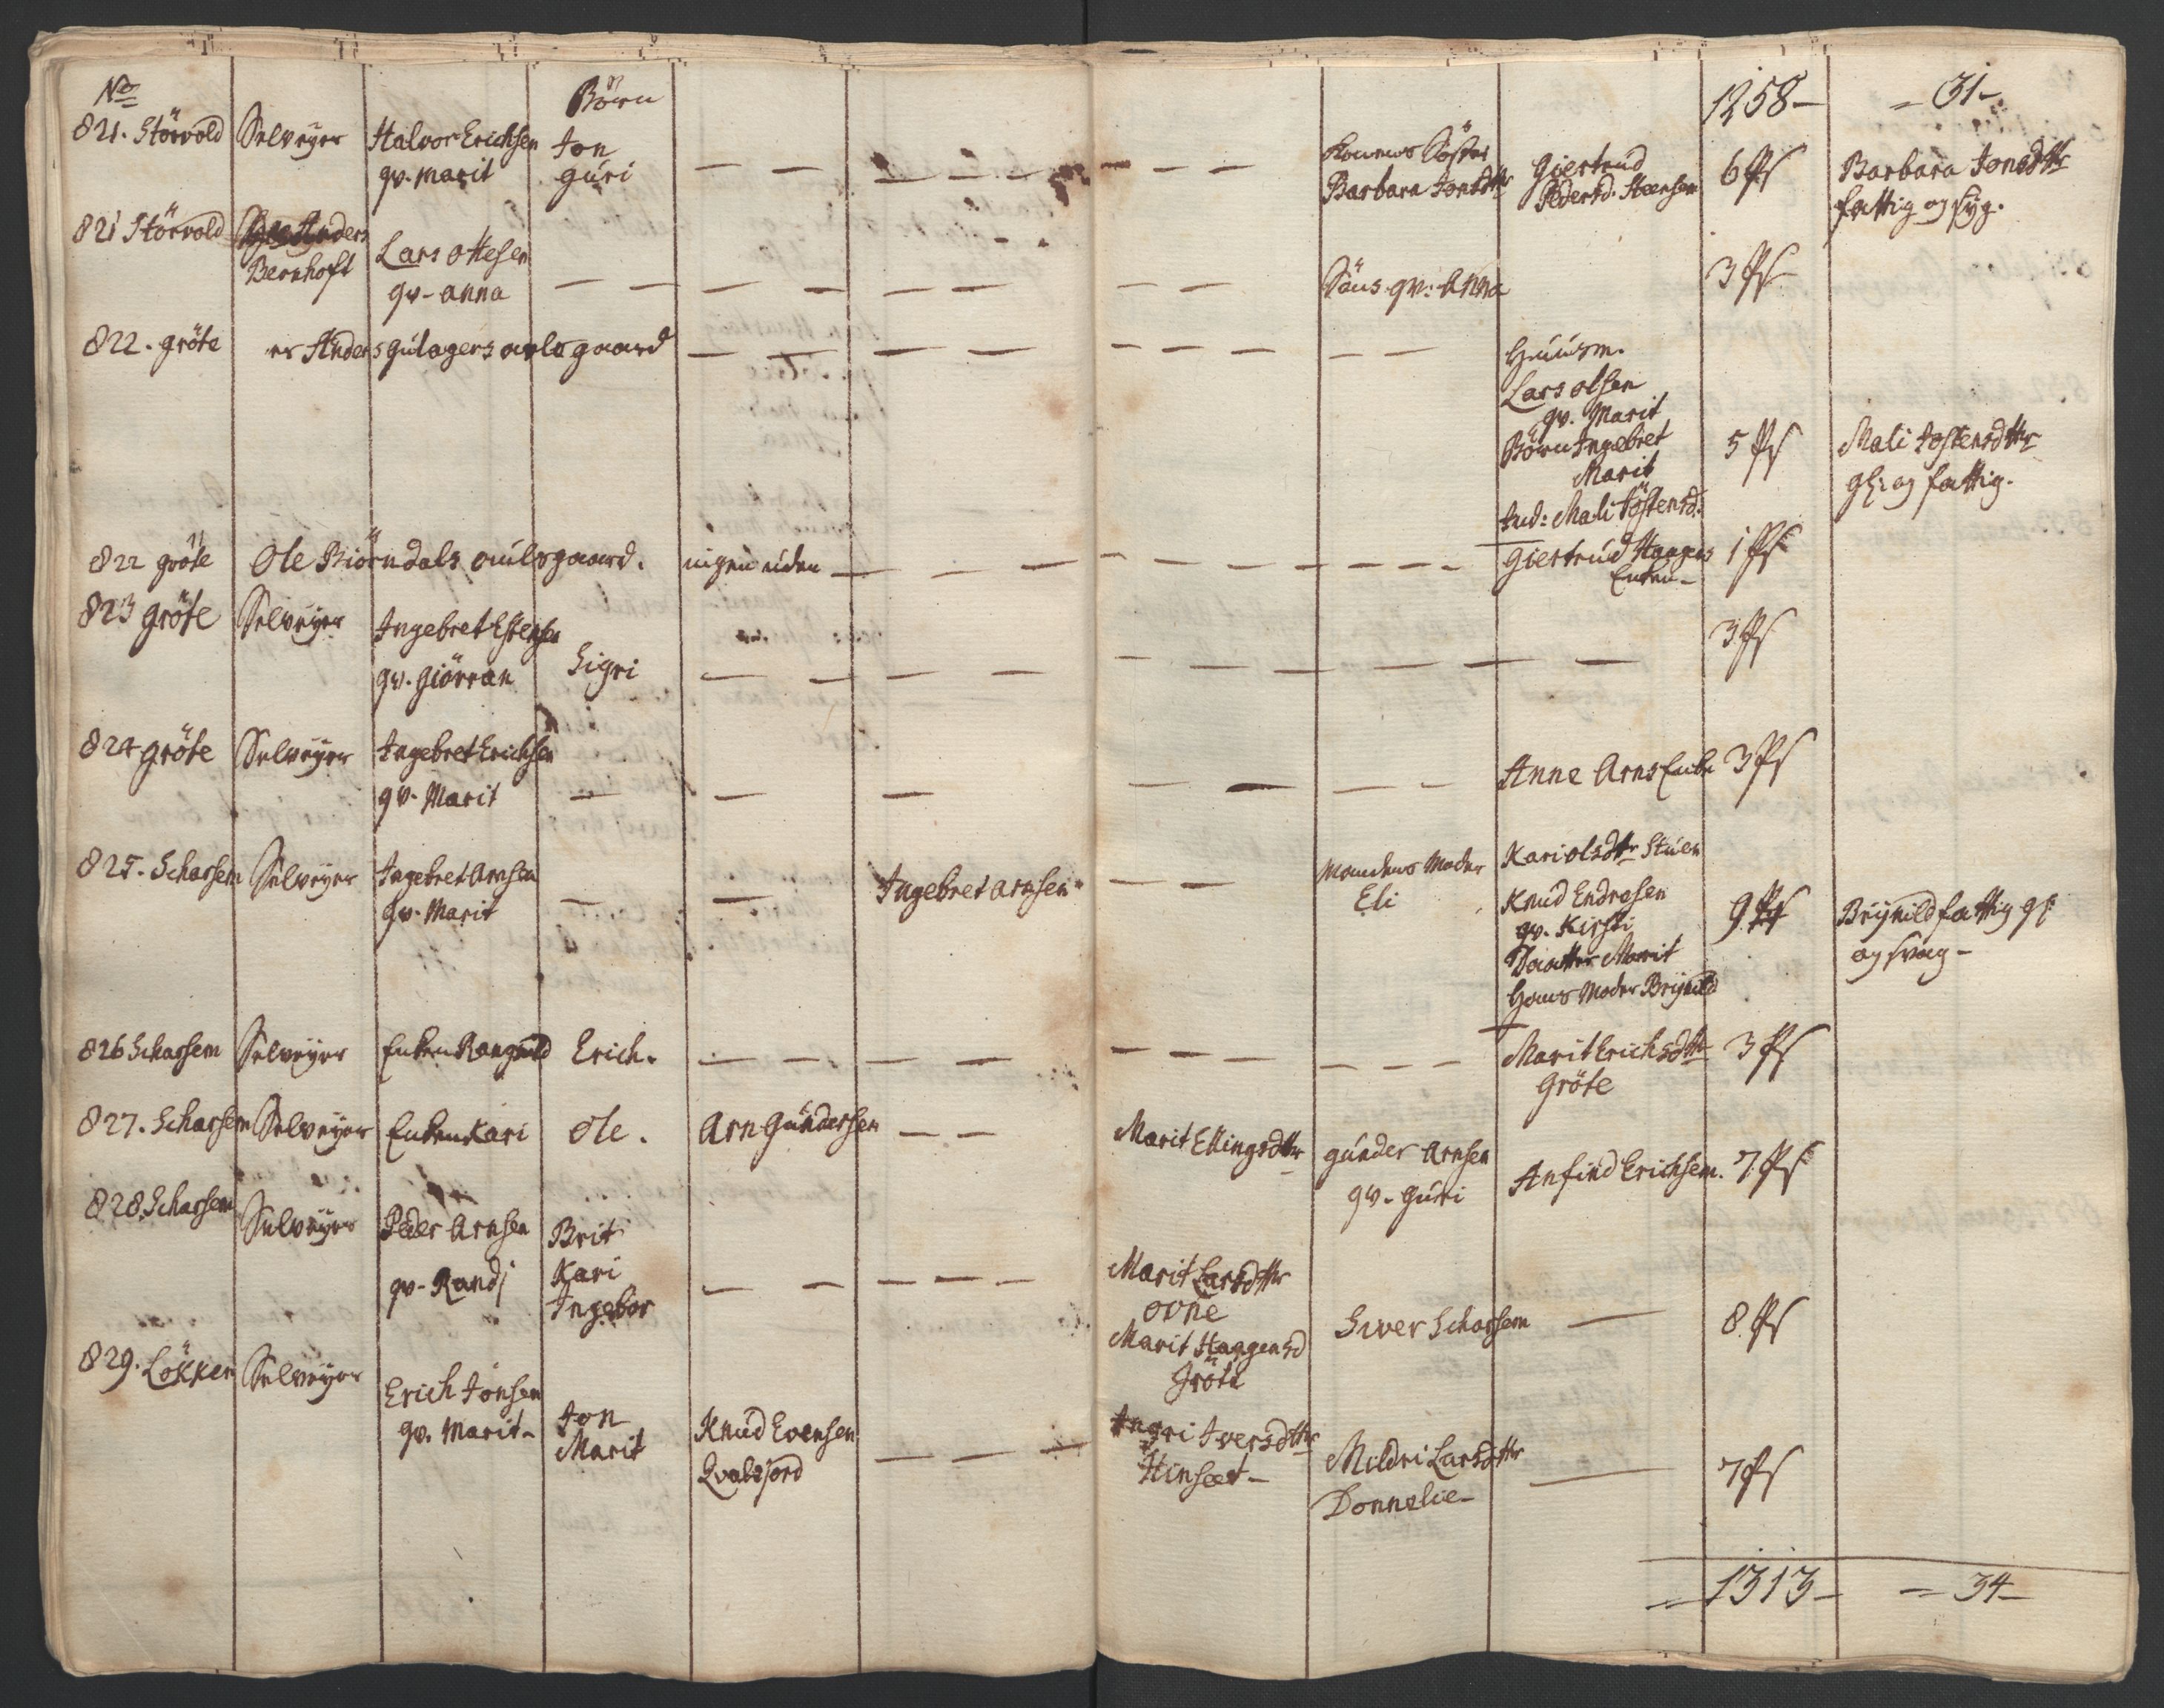 No
Börn
1258 –
= 31 –
821. Störvold Selveyer Halvor Erichsen Jon
gv. marit guri
Konens Söster
Barbara Jonsdttr
Giertrud
Pedersd. Steensen
6 Ps
Barbara Jonsdttr
fattig og syg.
821 Störvold Anders
Bernhoft
Lars Ottesen
gv. anna
Söns. gv: Anna
3 Ps
822. gröte er Anders gulagers avlsgaard
Huusm.
Lars olsen
gv. Marit
Börn Ingebret
Marit
Ind: Mali Töstensd:
5 Ps
Mali Tostensdttr
gl: og fattig.
822 gröte Ole Biörndals avlsgaard. ingen uden
Giertrud Haagens
Enken –
1 Ps
823 gröte Selveyer Ingebret Estensen
gv. giörran
Sigri
3 Ps
824 gröte Selveyer Ingebret Erichsen
gv. Marit
Anne Arns Enke 3 Ps
825. Schassem Selveyer Ingebret Arnsen
gv. Marit
Ingebret Arnsen
Mandens Moder
Eli
Kari olsdttr Stuen
Knud Endresen
gv. Kirsti
Daatter Marit
Hans Moder Brynild
9 Ps
Brynild fattig gl:
og svag –
826 Schassem Selveyer Enken Rangnild Erich.
Marit Erichsdttr
Gröte
3 Ps
827. Schassem Selveyer Enken Kari Ole. Arn Gundersen
Marit Ellingsdttr
gunder Arnsen
gv. Guri
Anfind Erichsem. 7 Ps
828. Schassem Selveyer Peder Arnsen
gv. Randj
Brit
Kari
Ingebor
Marit Larsdttr
ovne
Marit Haagensd
Gröte
Siver Schassem
8. Ps
829. Lökken Selveyer Erich Jonsen
gv. Marit –
Jon
Marit
Knud Evensen
Qvalsjord
Ingri Iversdttr
Hinseet –
Mildri Larsdttr
Donnelie –
7 Ps
= 1313 –
= 34 –